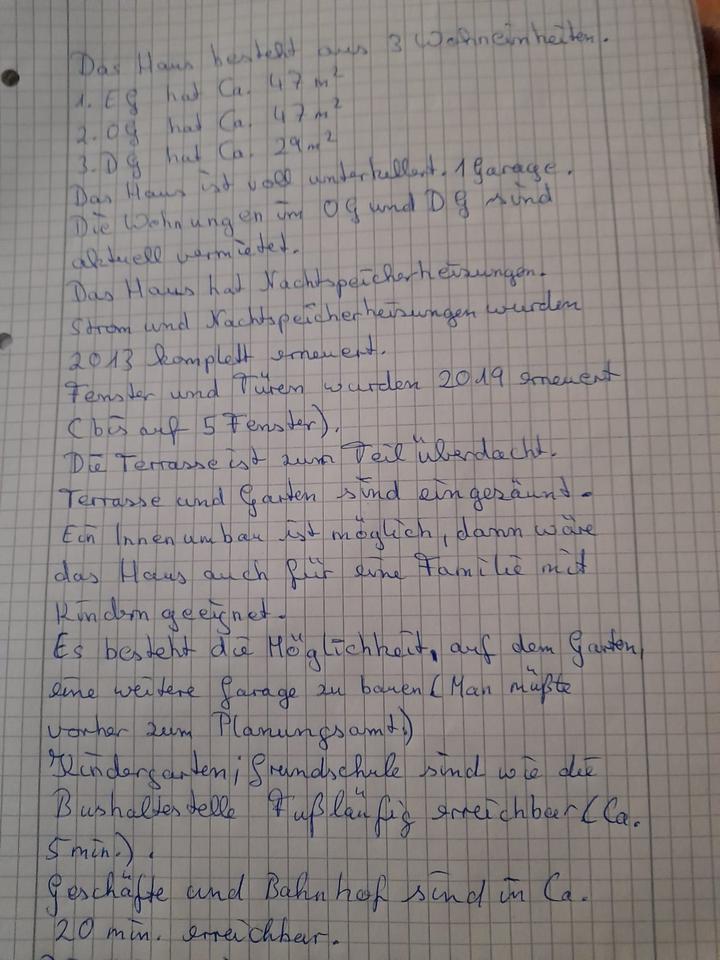 Das Haus besteht aus 3 Wohneinheiten.
1. EG hat Ca. 47 m²
2. OG hat Ca. 47 m²
3. DG hat Ca. 29 m²
Das Haus ist voll unterkellert. 1 Garage.
Die Wohnungen im OG und DG sind
aktuell vermietet.
Das Haus hat Nachtspeicherheizungen.
Strom und Nachtspeicherheizungen wurden
2013 komplett erneuert.
Fenster und Türen wurden 2019 erneuert
(bis auf 5 Fenster).
Die Terrasse ist zum Teil überdacht.
Terrasse und Garten sind eingezäunt.
Ein Innenumbau ist möglich, dann wäre
das Haus auch für eine Familie mit
Kindern geeignet.
Es besteht die Möglichkeit, auf dem Garten,
eine weitere Garage zu bauen (Man müßte
vorher zum Planungsamt.)
Kindergarten, Grundschule sind wie die
Bushaltestelle Fußläufig erreichbar (Ca.
5 min.).
Geschäfte und Bahnhof sind in Ca.
20 min. erreichbar.